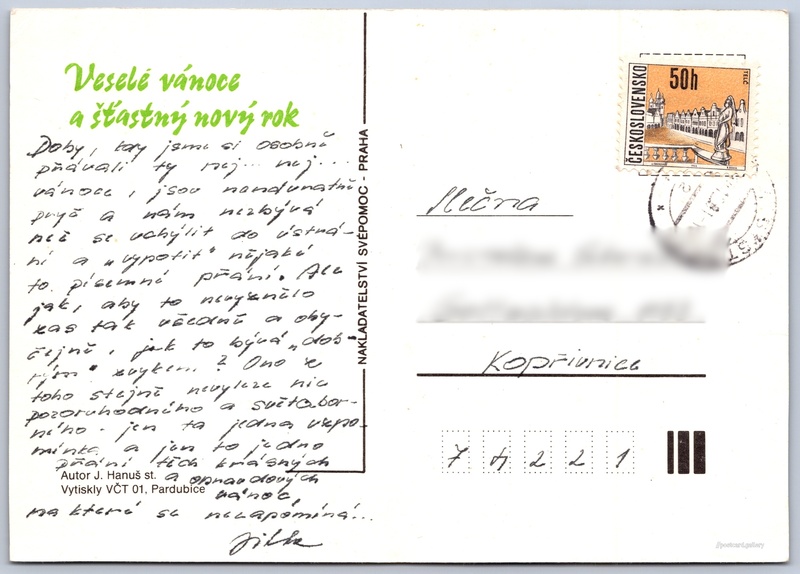 Veselé vánoce
a šťastný nový rok
Doby, kdy jsme si osobně
přávali ty nej... nej...
vánoce, jsou nenávratně
pryč a nám nezbývá
než se uchýlit do ústrá-
ní a „vypotit" nějaké
to písemné přání. Ale
jak, aby to nevyznělo
zas tak všedně a oby-
čejně, jak to bývá „dob-
rým" zvykem? Ono z
toho stejně nevyleze nic
pozoruhodného a světobor-
ného - jen ta jedna vzpo-
mínka a jen to jedno
přání těch krásných
a opravdových
vánoc,
na které se nezapomíná...
Jitka
Autor J. Hanuš st.
Vytiskly VČT 01, Pardubice
NAKLADATELSTVÍ SVÉPOMOC - PRAHA
ČESKOSLOVENSKO
50h
TELČ
Kopřivnice
7 4 2 2 1